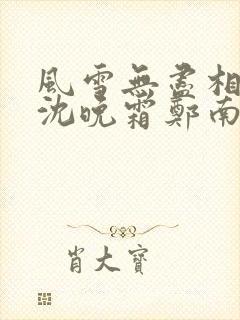 風雪無盡相
沈晚霜鄭南
肖大寶